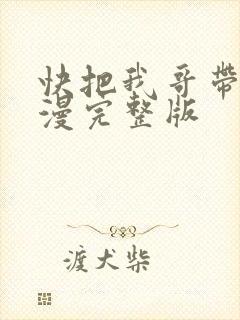 快把我哥带
漫完整版
渡犬柴